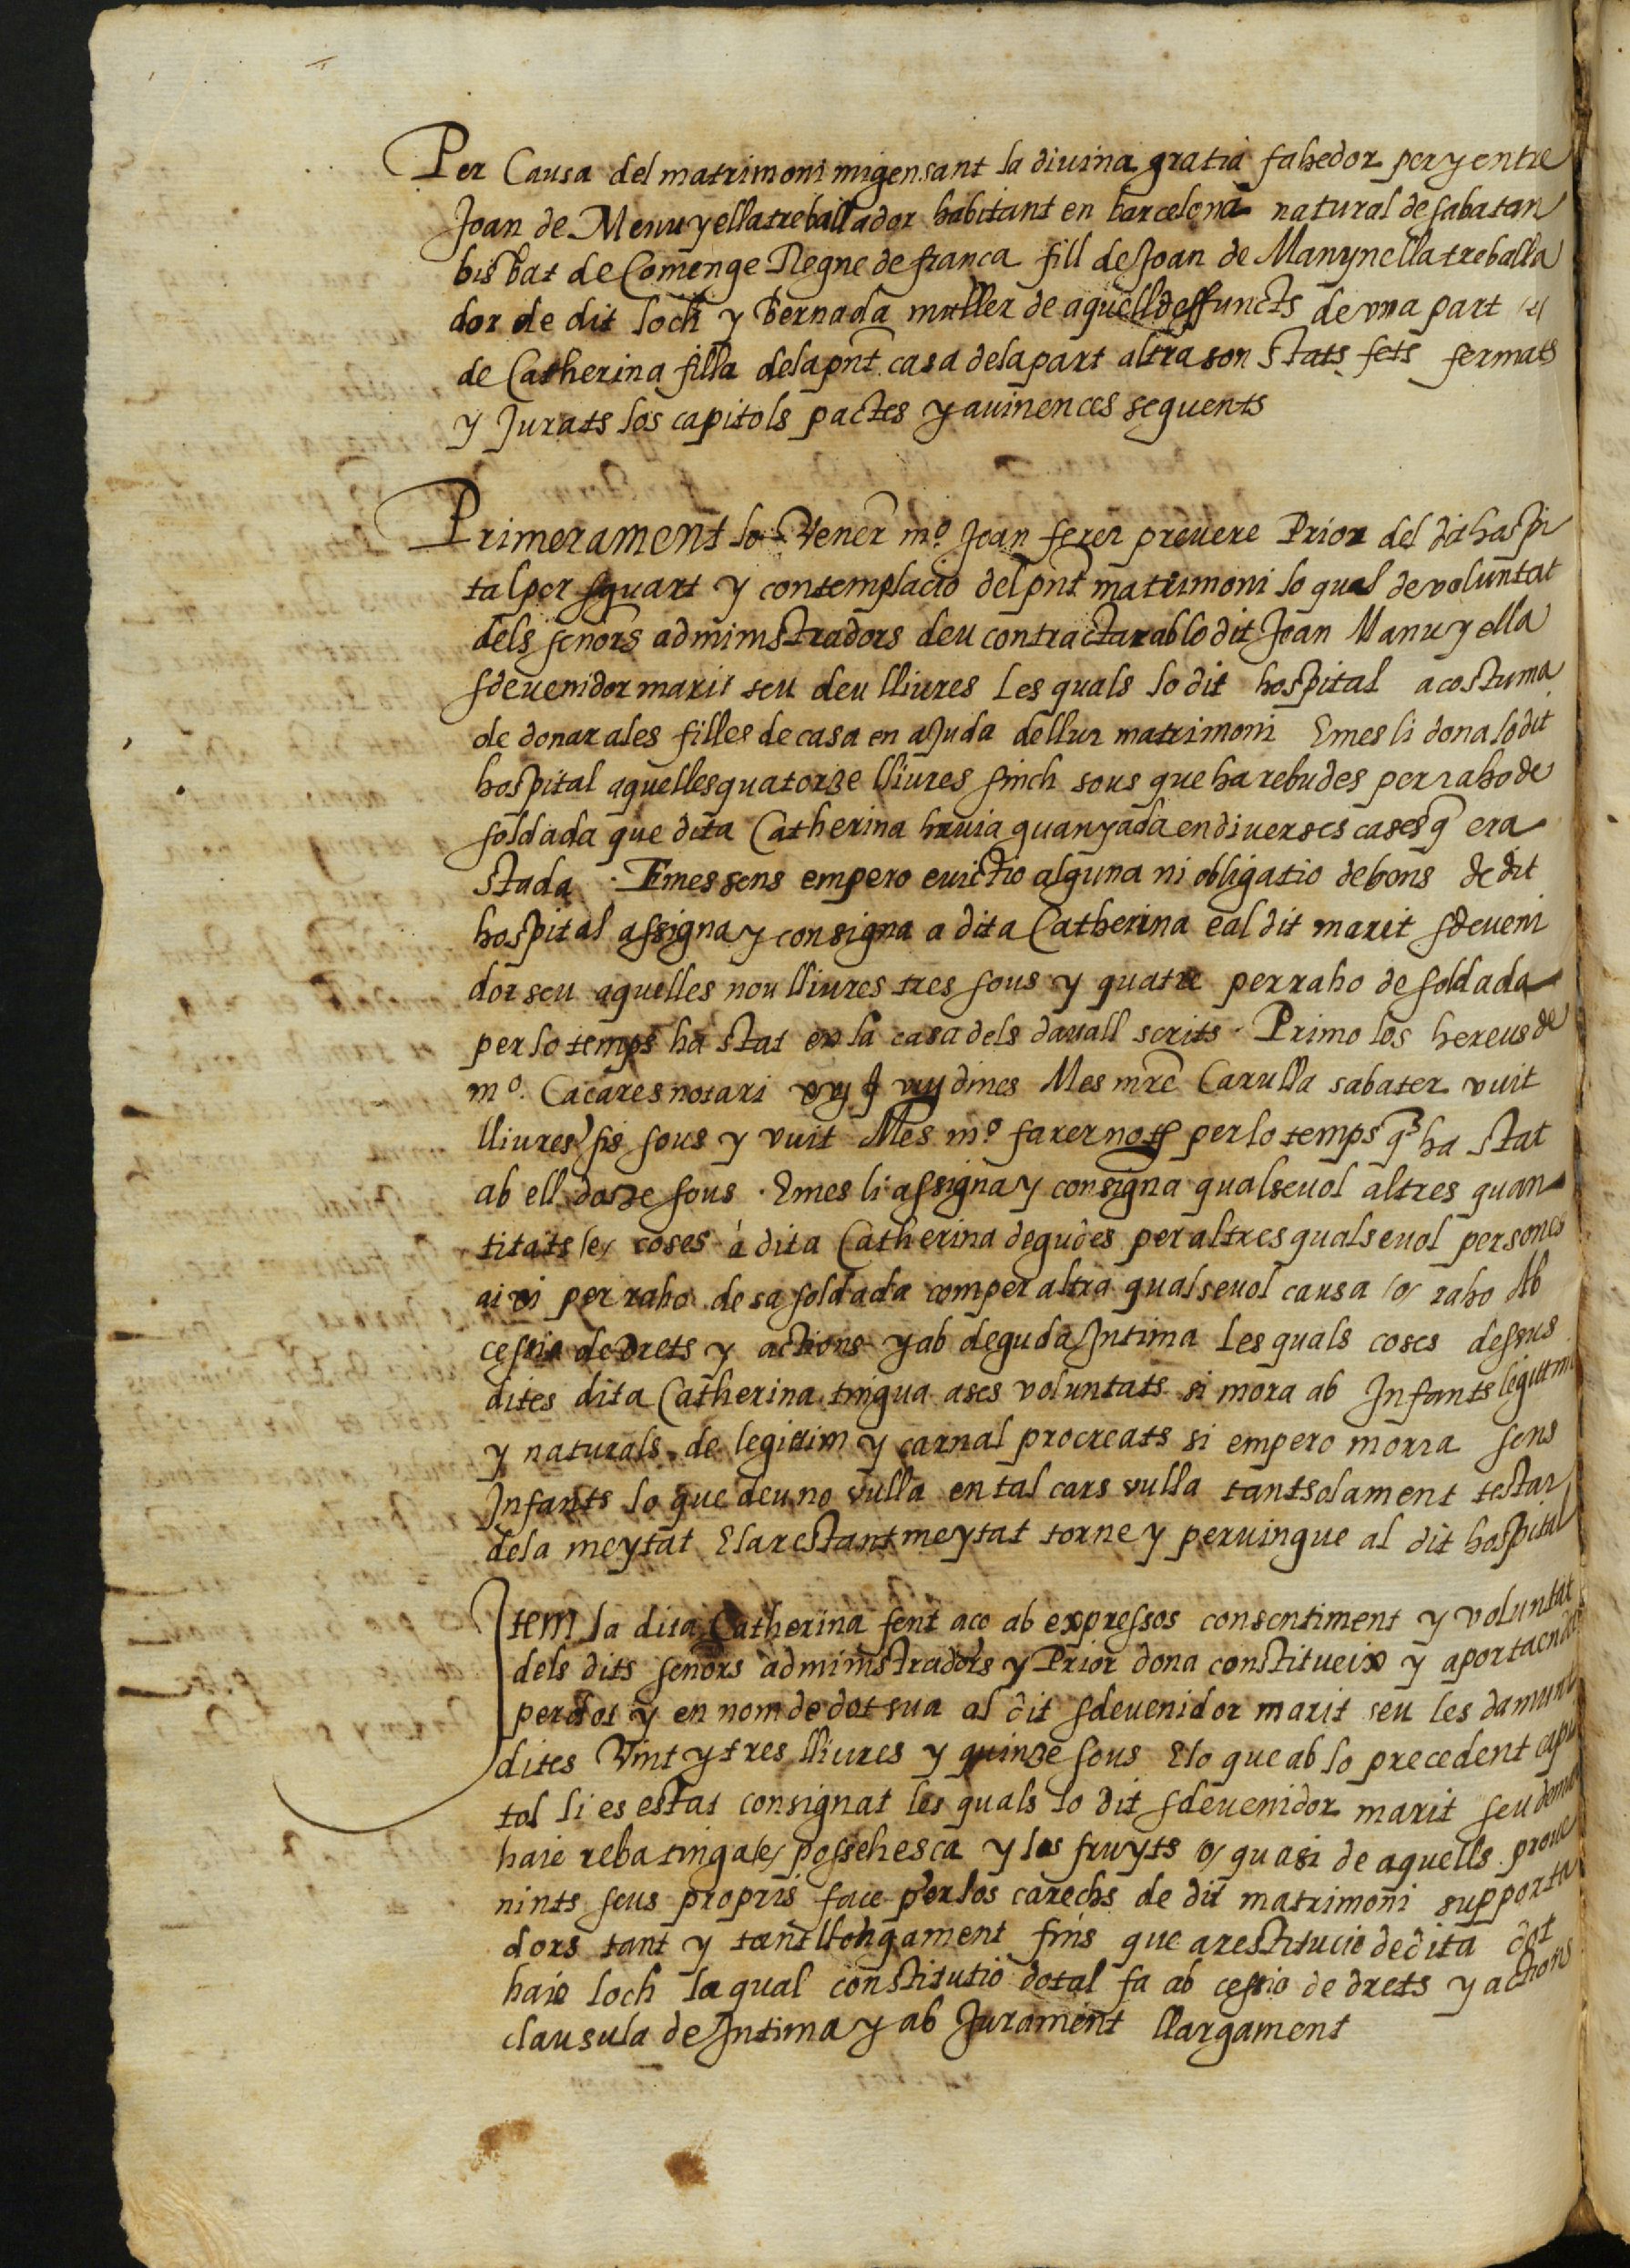 Per Causa del matrimoni migensant la diuina gratia fahedor per y entre
Joan de Menuyella treballador habitant en barcelona natural de sabatan
bisbat de Comenge Regne de franca fill de Joan de Manynella treballa
dor de dit loch y Bernada muller de aquell deffuncts de vna part /e/
de Catherina filla dela pnt casa dela part altra son stats fets fermats
y Jurats los capitols pactes y auinences seguents
Primerament lo Vener mº Joan ferer preuere Prior del dit hospi
tal per sguart y contemplacio del pnt matrimoni lo qual de voluntat
dels senors administradors deu contractar ab lo dit Joan Manuyella
sdeuenidor marit seu deu lliures les quals lo dit hospital acostuma
de donar a les filles de casa en ajuda de llur matrimoni E mes li dona lo dit
hospital aquelles quatorze lliures sinch sous que ha rebudes per raho de
soldada que dita Catherina hauia guanyada en diuerses cases q era
stada . E mes sens empero euictio alguna ni obligatio de bens de dit
hospital assigna y consigna a dita Catherina e al dit marit sdeueni
dor seu aquelles nou lliures tres sous y quatre per raho de soldada
per lo temps ha stat en la casa dels dauall scrits . Primo los hereus de
mº. Cacares notari dines Mes mre Carulla sabater vuit
lliures sis sous y vuit Mes mº farer not per lo temps q ha stat
ab ell dotze sous . E mes li assigna y consigna qualseuol altres quan
titats /e/ coses à dita Catherina degudes per altres qualseuol persones
axi per raho de sa soldada com per altra qualseuol causa /o/ raho Ab
cessio de drets y actions y ab deguda Intima les quals coses dessus
dites dita Catherina tingua a ses voluntats si mora ab Infants legittims
y naturals de legitim y carnal procreats si empero morra sens
Infants lo que deu no vulla en tal cars vulla tantsolament testar
dela meytat E la restant meytat torne y peruingue al dit hospital
Item la dita Catherina fent aco ab expressos consentiment y voluntat
dels dits senors administradors y Prior dona constitueix y aporta en dot
per dot y en nom de dot sua al dit sdeuenidor marit seu les damunt
dites Vint y tres lliures y quinze sous E lo que ab lo precedent capi
tol li es estat consignat les quals lo dit sdeuenidor marit seu deman
haie reba tinga /e/ possehesca y los fruyts /o/ quasi de aquells proue
nints seus propris face per los carechs de dit matrimoni supporta
dors tant y tant llongament fins que a restitucio de dita dot
haie loch la qual constitutio dotal fa ab cessio de drets y actions
clausula de Intima y ab Jurament llargament